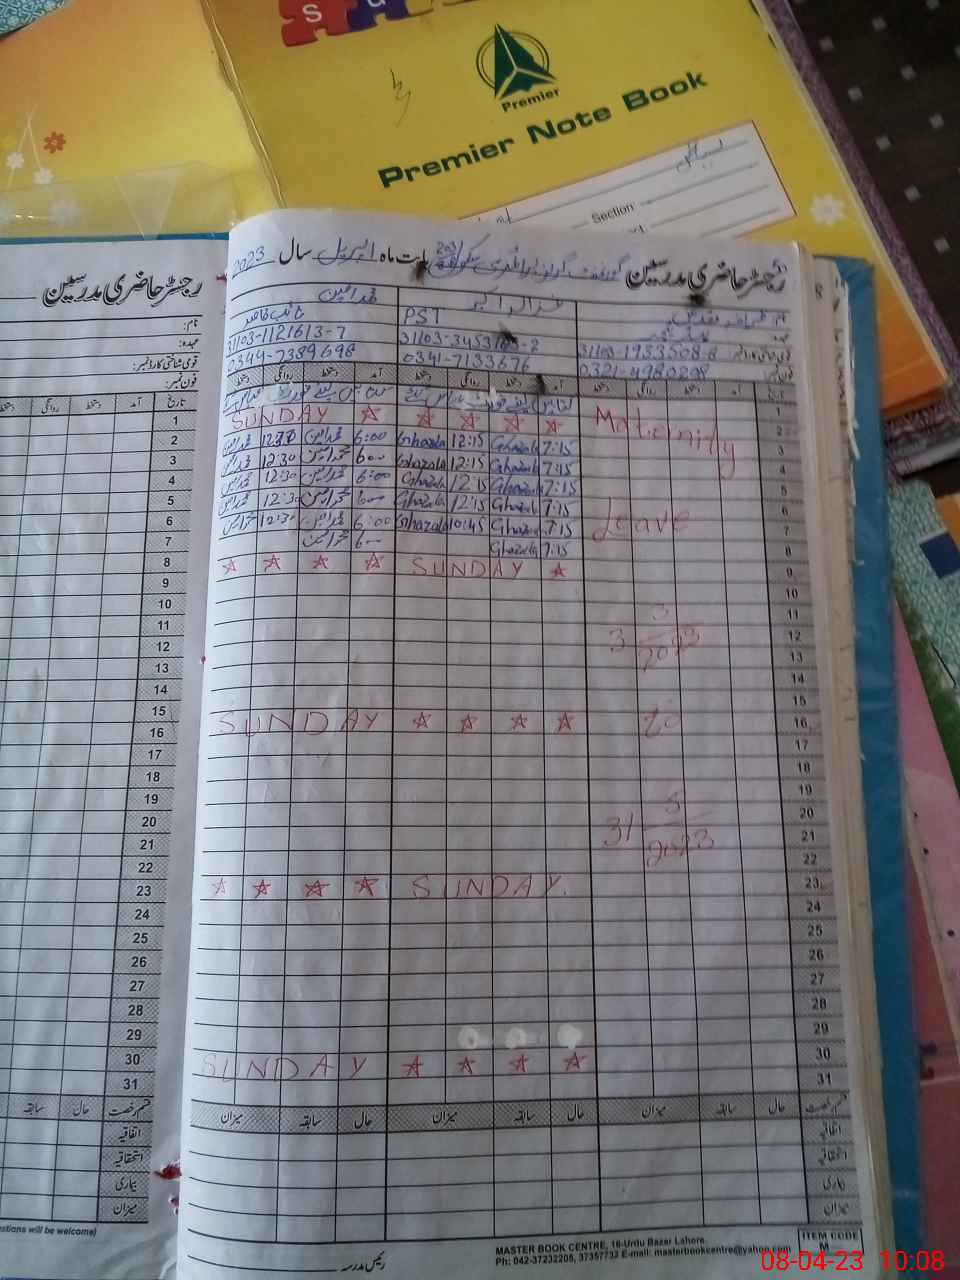 Premier
Premier Note Book
Section
رجسٹر حاضری مدرسین
نام:
عہدہ:
قومی شناختی کارڈ نمبر:
فون نمبر:
تاریخ آمد دستخط روانگی دستخط
1
2
3
4
5
6
7
8
9
10
11
12
13
14
15
16
17
18
19
20
21
22
23
24
25
26
27
28
29
30
31
قسم رخصت حال سابقہ
اتفاقیہ
استحقاقیہ
بیماری
میزان
estions will be welcome)
رجسٹر حاضری مدرسین گورنمنٹ گرلز پرائمری سکول بابت ماہ اپریل سال 2023
نام:
PST
قومی شناختی کارڈ نمبر: 31103-1933508-8
31103-1121613-7
فون نمبر: 0321-4980298
0341-7133676
0349-7389698
تاریخ آمد دستخط روانگی دستخط آمد دستخط روانگی دستخط آمد دستخط روانگی دستخط
1
2 SUNDAY
3 7:15 Ghazala 12:15 Ghazala 6:00 12:30
4 7:15 Ghazala 12:15 Ghazala 6:00 12:30
5 7:15 Ghazala 12:15 Ghazala 6:00 12:30
6 7:15 Ghazala 12:15 Ghazala 6:00 12:30
7 7:15 Ghazala 10:45 Ghazala 6:00 12:30
8 7:15 Ghazala 6:00
9 SUNDAY
10
11
12
13
14
15
16 SUNDAY
17
18
19
20
21
22
23 SUNDAY.
24
25
26
27
28
29
30 SUNDAY
31
Maternity
Leave
3
3
2023
31
5
2023
قسم رخصت حال سابقہ میزان حال سابقہ میزان حال سابقہ میزان
اتفاقیہ
استحقاقیہ
بیماری
میزان
ITEM CODE
M
رئیس مدرسہ
MASTER BOOK CENTRE, 16-Urdu Bazar Lahore.
Ph: 042-37232205, 37357732 E-mail: masterbookcentre@yahoo.com
08-04-23 10:08